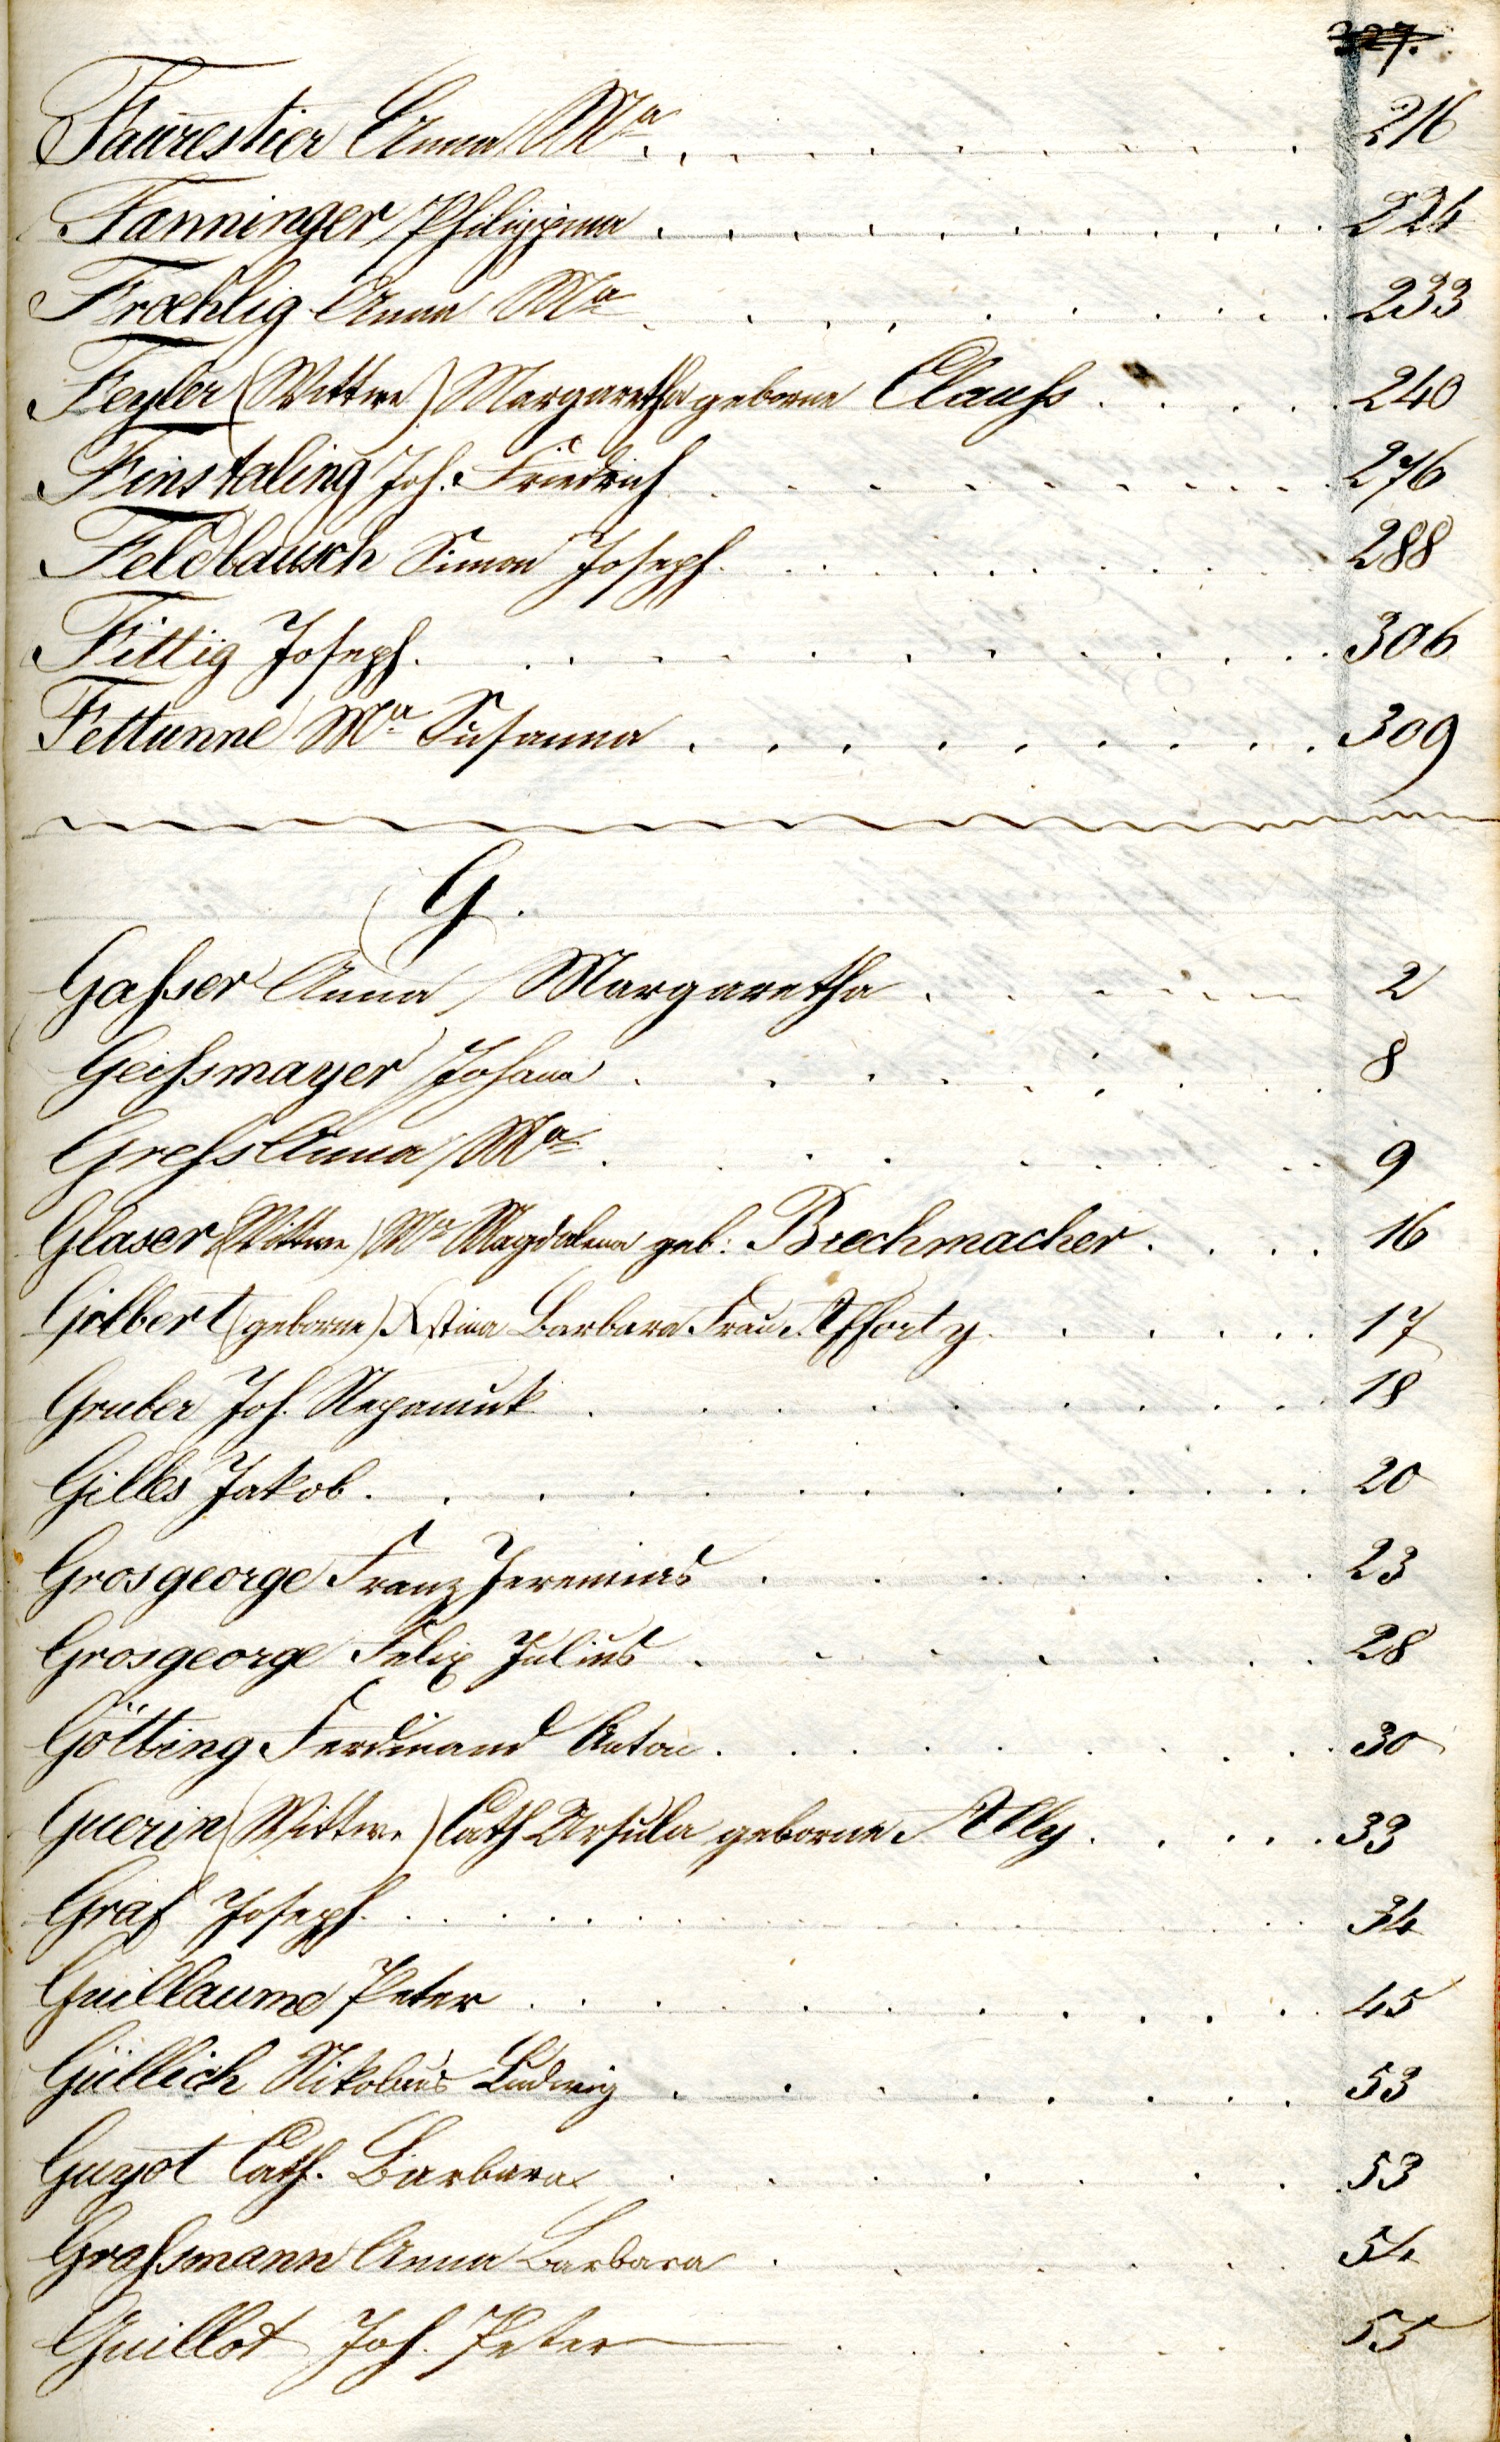 327.
Faurestier Anna Ma . . . . . . . . 216
Fanninger Philippina . . . . . . . . 224
Froehlig Anna Ma . . . . . . . . 233
Feyler (Wittwe) Margaretha geborne Clauſs . . . . . 240
Finstaling Joh. Friedrich . . . . . . . . 276
Feldbausch Simon Joseph . . . . . . . . 288
Fittig Joseph . . . . . . . . 306
Fettunne Ma Susanna . . . . . . . . 309
G.
Gaſser Anna Margaretha . . . . . . 2
Geiſsmayer Johann . . . . . . . . 8
Greſs Anna Ma . . . . . . . 9
Glaser (Wittwe) Ma Magdalena geb: Brechmacher . . . . 16
Golbert (geborne) Xstina Barbara Frau Afforty . . . . . 17
Gruber Joh. Nepomuk . . . . . . . . 18
Gilles Jakob . . . . . . . . 20
Grosgeorge Franz Jeremias . . . . . . . 23
Grosgeorge Felix Julius . . . . . . . 28
Götting Ferdinand Anton . . . . . . . . 30
Guerin (Wittwe) Cath Ursula geborne Ally . . . . . 33
Graf Joseph . . . . . . . . 34
Guillaume Peter . . . . . . . . 45
Güllich Nikolaus Ludwig . . . . . . . . 53
Guyot Cath. Barbara . . . . . . . 53
Graſsmann Anna Barbara . . . . . . 54
Guillot Joh. Peter . . . . . . 55